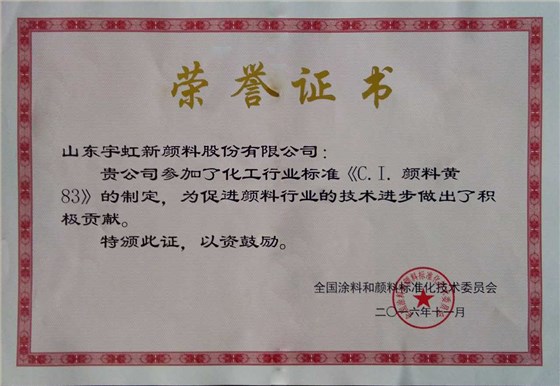 荣誉证书
山东宇虹新颜料股份有限公司：
贵公司参加了化工行业标准《C.I. 颜料黄
83》的制定，为促进颜料行业的技术进步做出了积
极贡献。
特颁此证，以资鼓励。
全国涂料和颜料标准化技术委员会
二〇一六年十一月